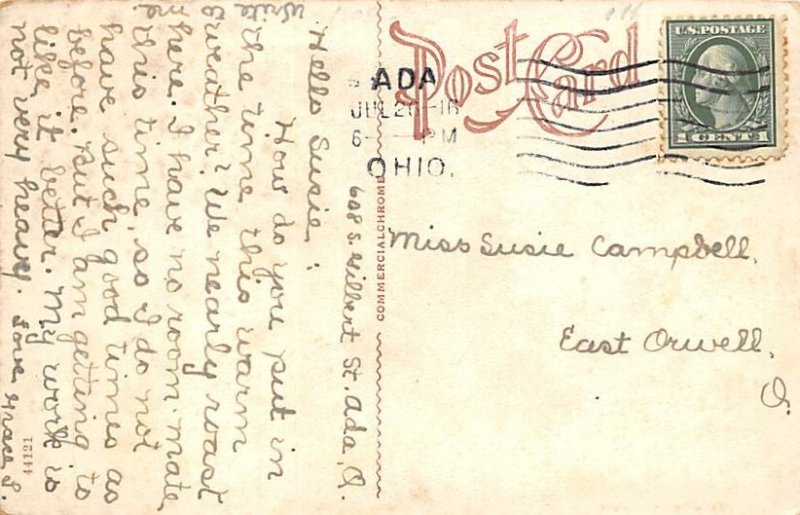 608 S. Gilbert St. Ada, O.
Hello Susie:
How do you put in
the time this warm
weather? We nearly roast
here. I have no room-mate
this time, so I do not
have such good times as
before. But I am getting to
like it better. My work is
not very heavy. Love, Grace S.
Write
44121
COMMERCIALCHROME
Post Card
ADA
JUL 26 16
6 PM
OHIO.
U.S. POSTAGE
1 CENT 1
Miss Susie Campbell,
East Orwell,
O.